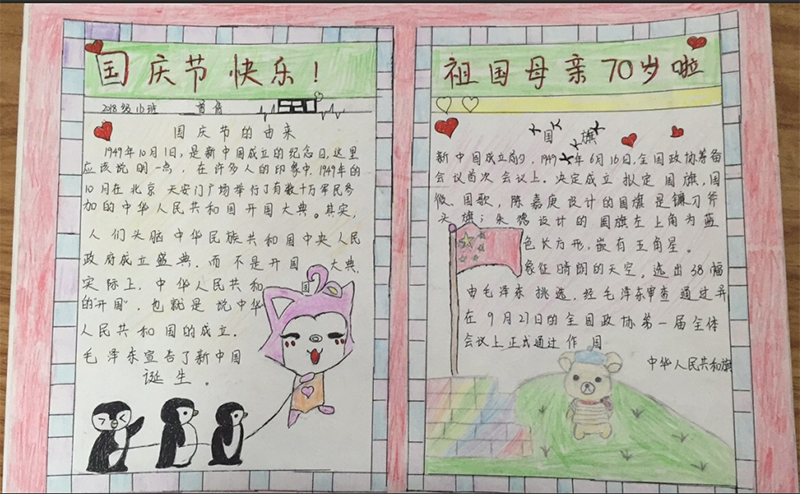 国庆节快乐!
2018级10班
国庆节的由来
1949年10月1日,是新中国成立的纪念日,这里
应该说明一点,在许多人的印象中,1949年的
10月在北京天安门广场举行了有数十万军民参
加的中华人民共和国开国大典。其实,
人们头脑中华民族共和国中央人民
政府成立盛典.而不是开国大典,
实际上,中华人民共和国
的"开国".也就是说中华
人民共和国的成立.
毛泽东宣告了新中国
诞生。
国
祖国母亲70岁啦
国旗
新中国成立前夕,1949年6月16日,全国政协筹备
会议首次会议上,决定成立拟定国旗,国
徽、国歌,陈嘉庚设计的国旗是镰刀斧
头旗;朱德设计的国旗左上角为蓝
色长方形,嵌有五角星。
象征晴朗的天空,选出38幅
由毛泽东挑选,经毛泽东审查通过并
在9月27日的全国政协第一届全体
会议上正式通过作国
中华人民共和旗